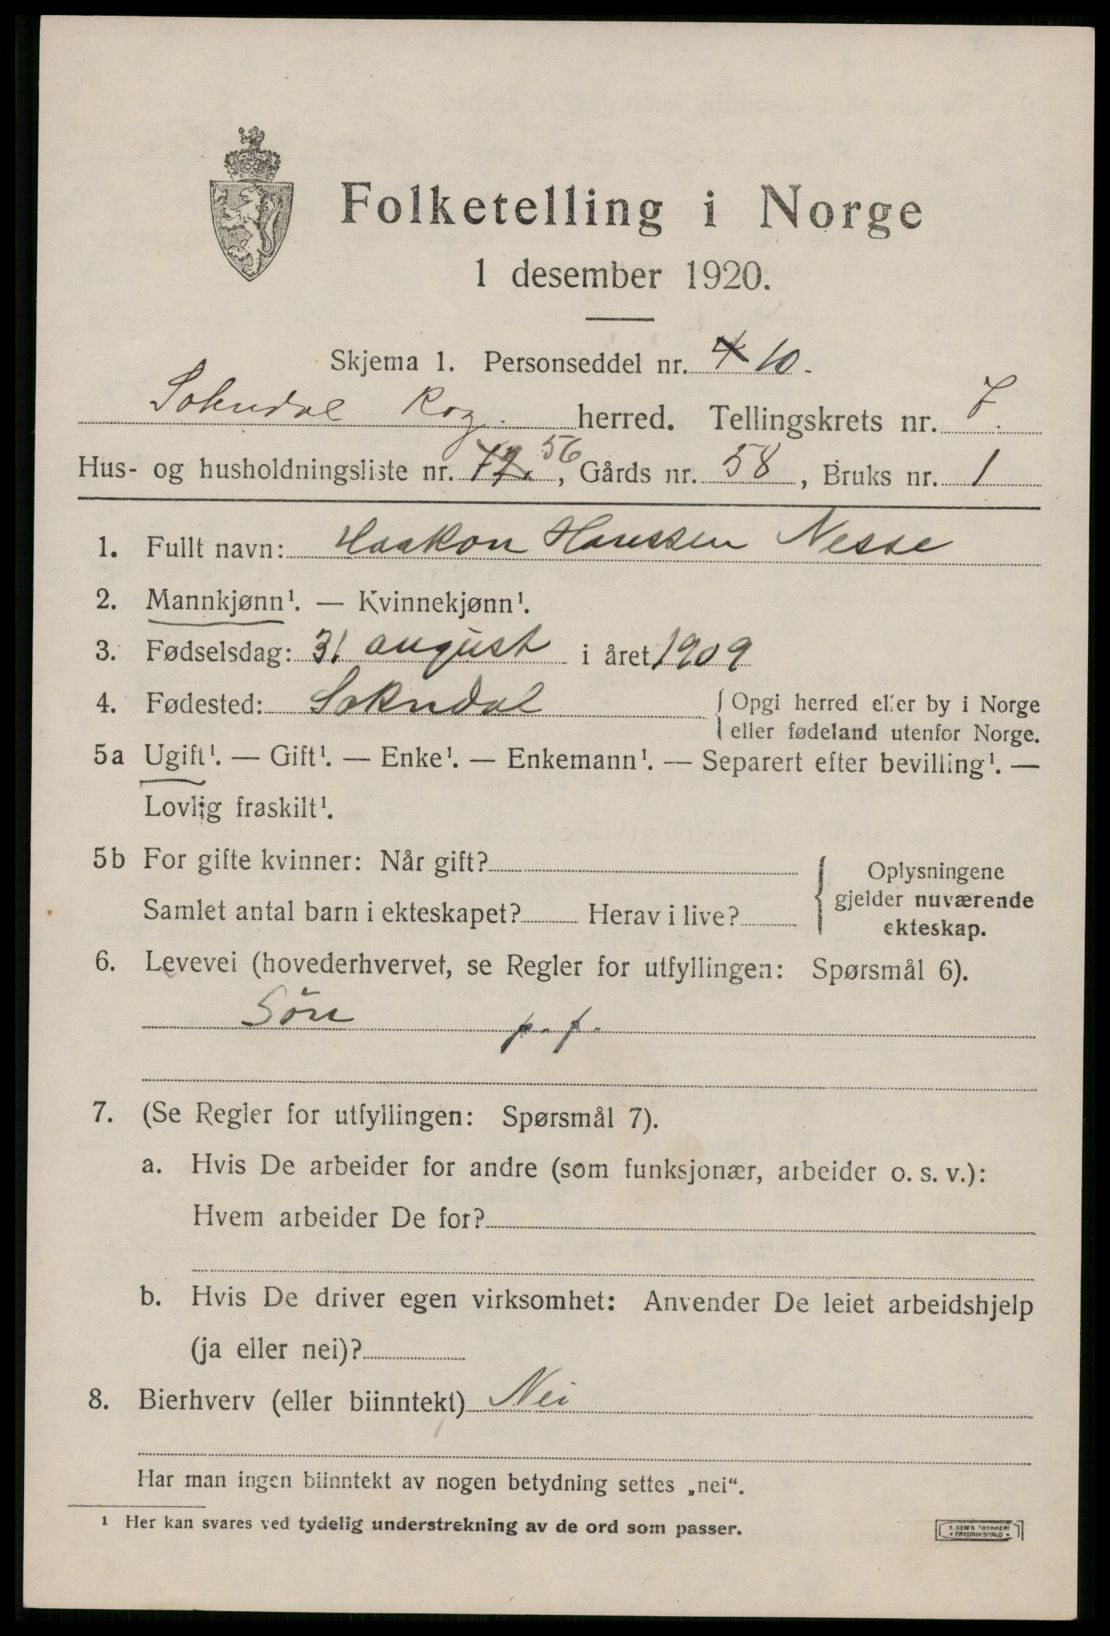 Folketelling i Norge
1 desember 1920.
Skjema 1. Personseddel nr. 4 10.
Sokndal Rog. herred. Tellingskrets nr. 7.
Hus- og husholdningsliste nr. 12. 56, Gårds nr. 58, Bruks nr. 1
1. Fullt navn: Haakon Hanssen Nesse
2. Mannkjønn¹. — Kvinnekjønn¹.
3. Fødselsdag: 31 august i året 1909
4. Fødested: Sokndal { Opgi herred eller by i Norge
eller fødeland utenfor Norge.
5a Ugift¹. — Gift¹. — Enke¹. — Enkemann¹. — Separert efter bevilling¹. —
Lovlig fraskilt¹.
5b For gifte kvinner: Når gift?
Samlet antal barn i ekteskapet? Herav i live?
{ Oplysningene
gjelder nuværende
ekteskap.
6. Levevei (hovederhvervet, se Regler for utfyllingen: Spørsmål 6).
Sön p. f.
7. (Se Regler for utfyllingen: Spørsmål 7).
a. Hvis De arbeider for andre (som funksjonær, arbeider o. s. v.):
Hvem arbeider De for?
b. Hvis De driver egen virksomhet: Anvender De leiet arbeidshjelp
(ja eller nei)?
8. Bierhverv (eller biinntekt) Nei
Har man ingen biinntekt av nogen betydning settes „nei“.
¹ Her kan svares ved tydelig understrekning av de ord som passer.
E. SEM'S TRYKKERI
FREDRIKSHALD